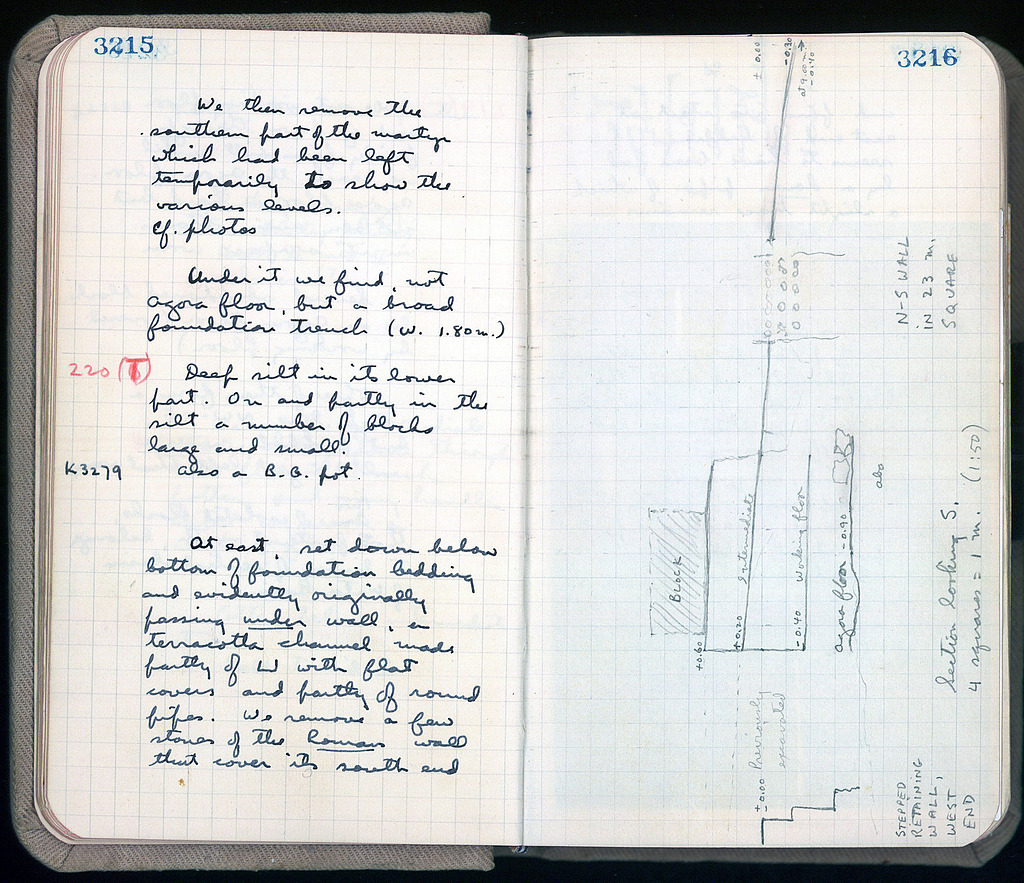 3215
We then remove the
southern part of the martyr
which had been left
temporarily to show the
various levels.
cf. photos
Under it we find, not
agora floor, but a broad
foundation trench (w. 1.80 m.)
220 (T) Deep silt in its lower
part. On and partly in the
silt a number of blocks
large and small.
K3279 also a B.G. pot.
At east, set down below
bottom of foundation bedding
and evidently originally
passing under wall, a
terracotta channel made
partly of with flat
covers and partly of round
pipes. We remove a few
stones of the Roman wall
that cover its south end
3216
± 0.00
-0.30
at 9.00 m →
-0.40
N-S WALL
IN 23 m.
SQUARE
Block
Intermediate
Working floor
agora floor -0.90
+0.60
+0.20
-0.40
±0.00 Previously
excavated
Section looking S.
4 squares = 1 m. (1:50)
STEPPED
RETAINING
WALL,
WEST
END